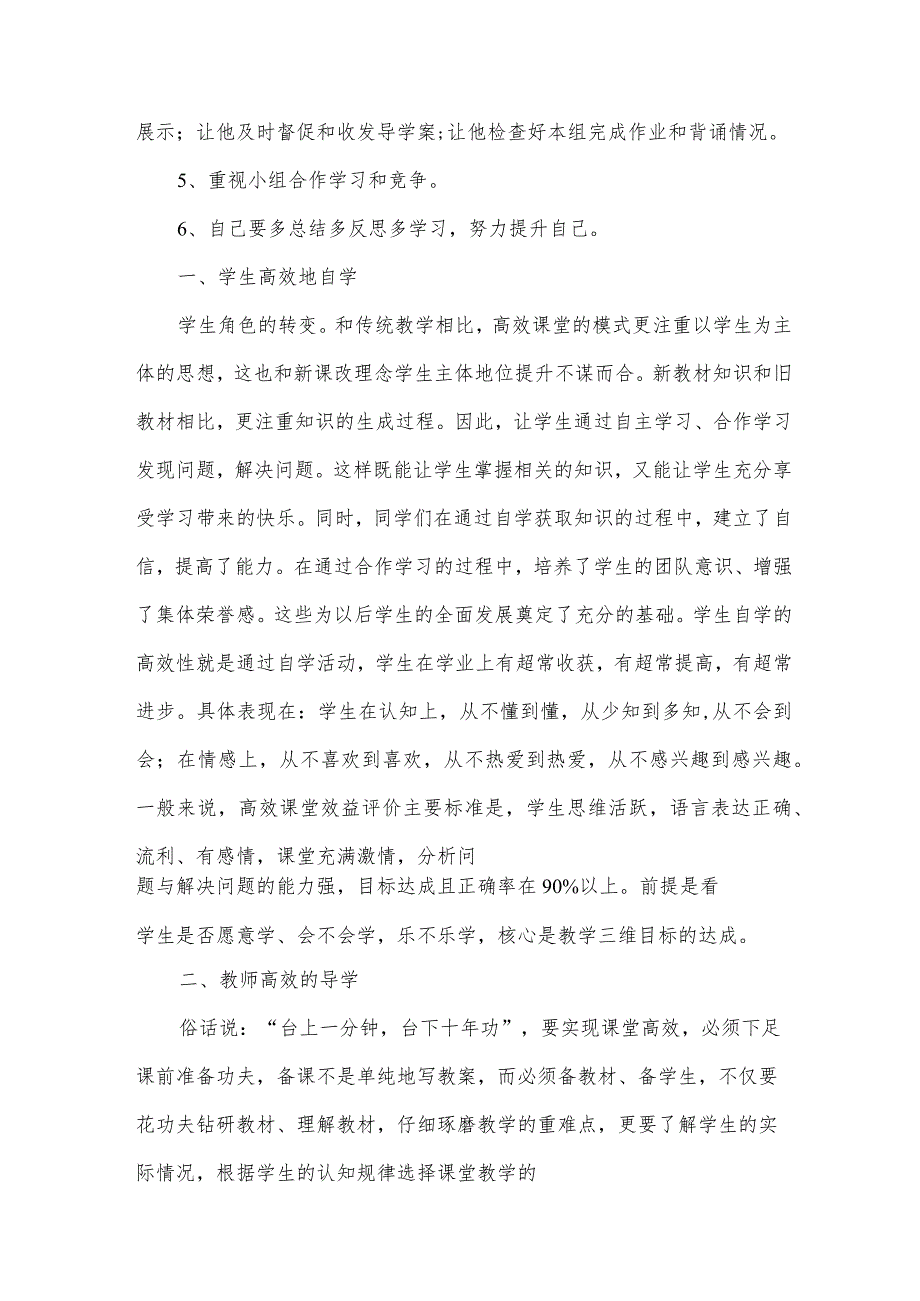 展示；让他及时督促和收发导学案;让他检查好本组完成作业和背诵情况。
5、重视小组合作学习和竞争。
6、自己要多总结多反思多学习，努力提升自己。
一、学生高效地自学
学生角色的转变。和传统教学相比，高效课堂的模式更注重以学生为主
体的思想，这也和新课改理念学生主体地位提升不谋而合。新教材知识和旧
教材相比，更注重知识的生成过程。因此，让学生通过自主学习、合作学习
发现问题，解决问题。这样既能让学生掌握相关的知识，又能让学生充分享
受学习带来的快乐。同时，同学们在通过自学获取知识的过程中，建立了自
信，提高了能力。在通过合作学习的过程中，培养了学生的团队意识、增强
了集体荣誉感。这些为以后学生的全面发展奠定了充分的基础。学生自学的
高效性就是通过自学活动，学生在学业上有超常收获，有超常提高，有超常
进步。具体表现在：学生在认知上，从不懂到懂，从少知到多知,从不会到
会；在情感上，从不喜欢到喜欢，从不热爱到热爱，从不感兴趣到感兴趣。
一般来说，高效课堂效益评价主要标准是，学生思维活跃，语言表达正确、
流利、有感情，课堂充满激情，分析问
题与解决问题的能力强，目标达成且正确率在90%以上。前提是看
学生是否愿意学、会不会学，乐不乐学，核心是教学三维目标的达成。
二、教师高效的导学
俗话说：“台上一分钟，台下十年功”，要实现课堂高效，必须下足
课前准备功夫，备课不是单纯地写教案，而必须备教材、备学生，不仅要
花功夫钻研教材、理解教材，仔细琢磨教学的重难点，更要了解学生的实
际情况，根据学生的认知规律选择课堂教学的